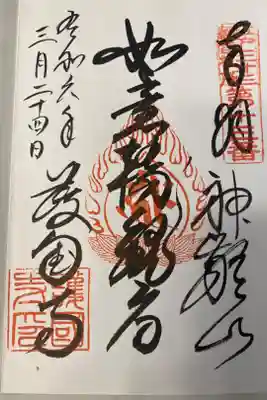 奉拝 神齢山
如意輪観音
令和六年
三月二十四日
護国寺